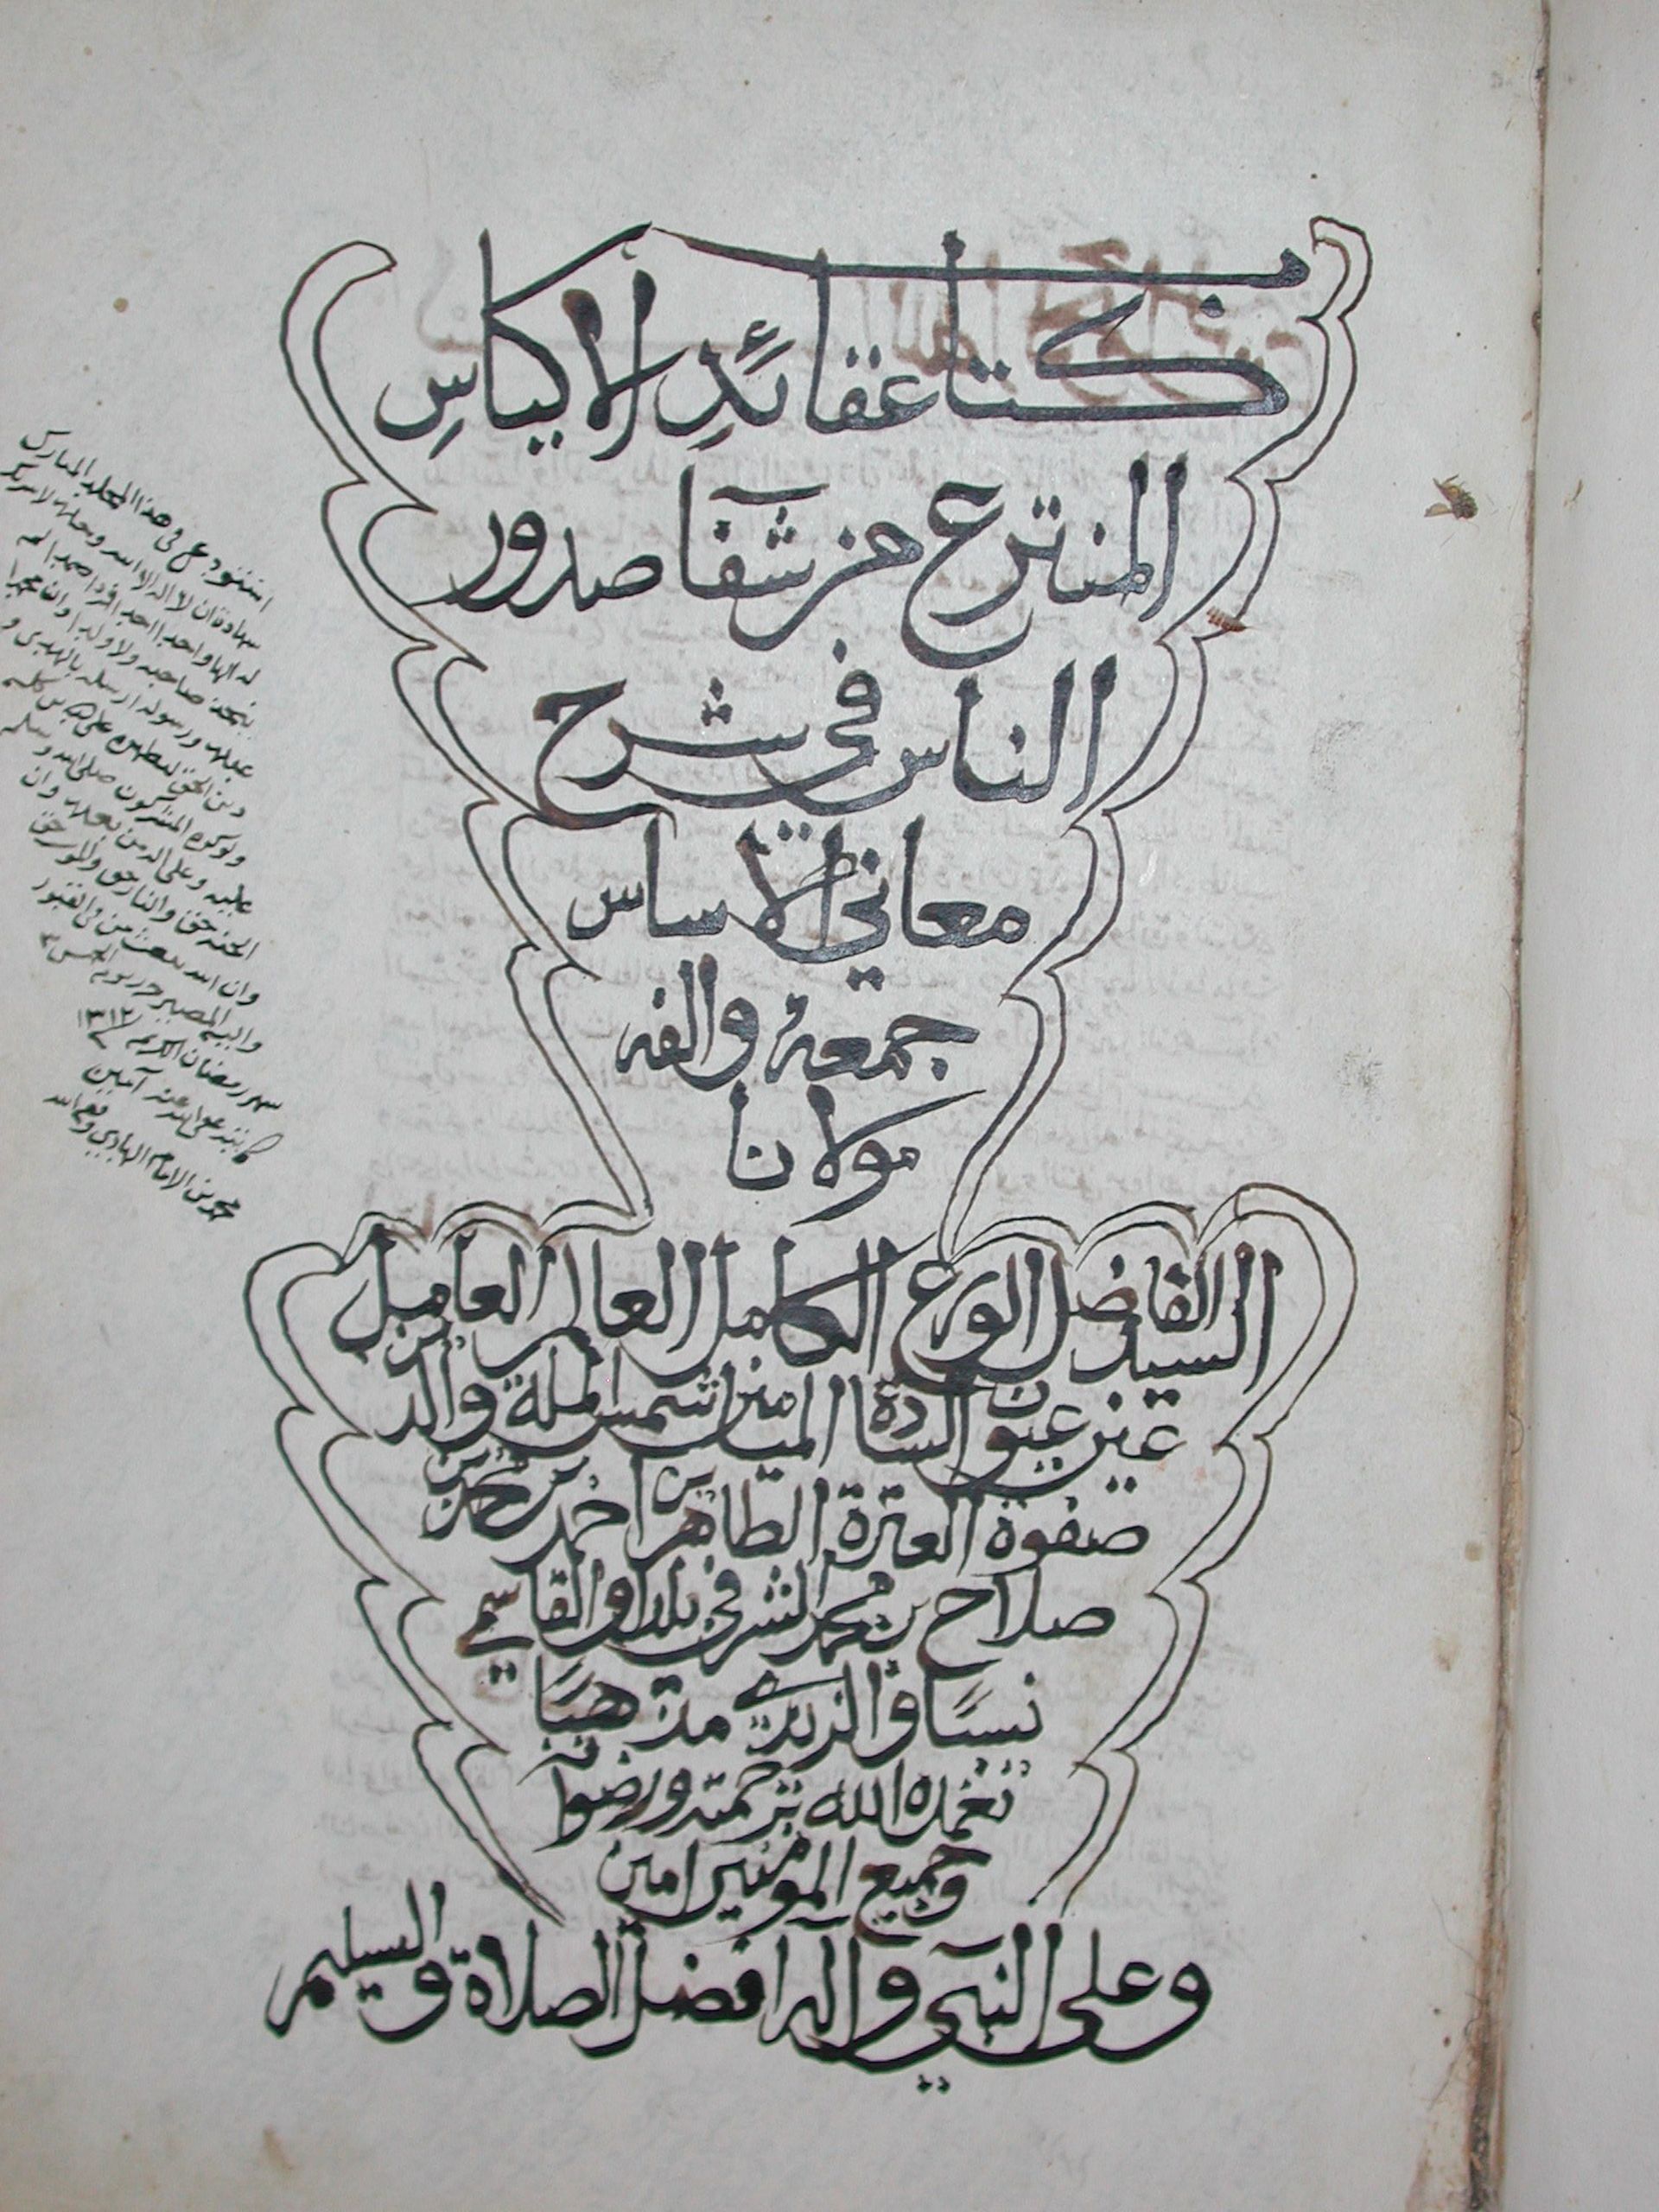 كتاب عقائد الاكياس
المنتزع من شفآ صدور
الناس في شرح
معاني الاساس
جمعه والفه
مولانا
السيد الفاضل الورع الكامل العالم العامل
عين عيون السادة الميامين شمس الملة والدين
صفوة العترة الطاهرين احمد بن محمد بن
صلاح بن محمد الشرفي بلدا والقاسمي
نسبًا والزيدي مذهبًا
تغمده الله برحمته ورضوانه
وجميع المومنين امين
وعلى النبي وآله افضل الصلاة والتسليم
استودع في هذا المجلد المبارك
شهادة ان لا اله الا الله وحده لا شريك
له الها واحدا احدا فردا صمدا لم
يتخذ صاحبه ولا ولدا وان محمدا
عبده ورسوله ارسله بالهدى و
دين الحق ليظهره على الدين كله
ولوكره المشركون صلى الله وسلم
عليه وعلى اله من بعده وان
الجنه حق والنار حق والموت حق
وان الله يبعث من في القبور
واليه المصير حرر يوم الخميس
شهر رمضان الكريم ١٣١٢
كاتبه عفى الله عنه آمين
محمد بن الامام الهادي وفقه الله